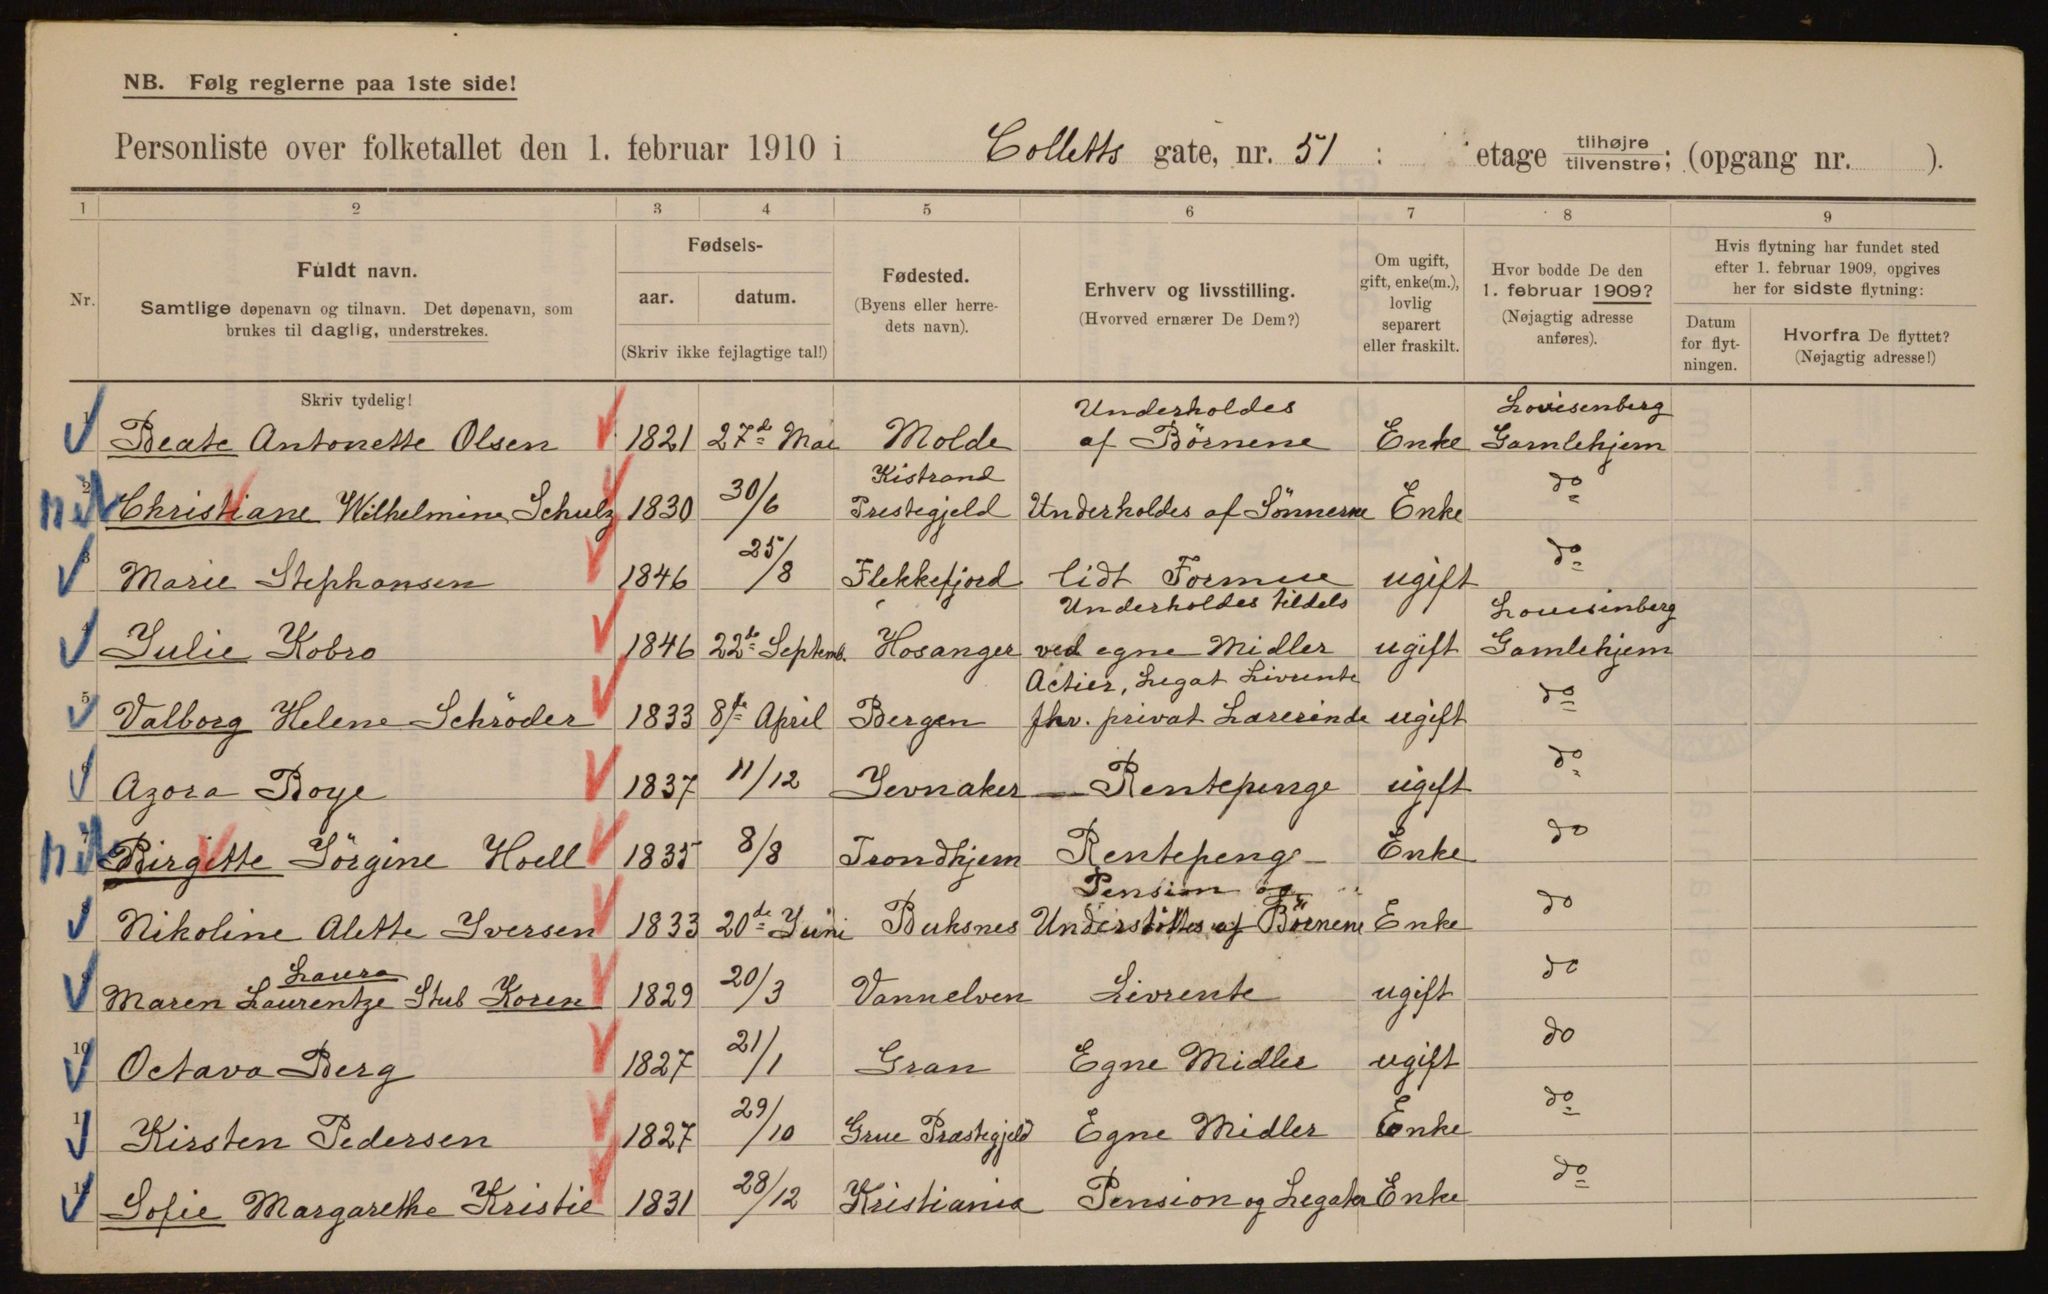 NB. Følg reglerne paa 1ste side!
Personliste over folketallet den 1. februar 1910 i Colletts gate, nr. 51 : etage tilhøjre/tilvenstre; (opgang nr. ).
1 2 3 4 5 6 7 8 9
Nr.
Fuldt navn.
Samtlige døpenavn og tilnavn. Det døpenavn, som
brukes til daglig, understrekes.
Fødsels-
aar. datum.
(Skriv ikke fejlagtige tal!)
Fødested.
(Byens eller herre-
dets navn).
Erhverv og livsstilling.
(Hvorved ernærer De Dem?)
Om ugift,
gift, enke(m.),
lovlig
separert
eller fraskilt.
Hvor bodde De den
1. februar 1909?
(Nøjagtig adresse
anføres).
Hvis flytning har fundet sted
efter 1. februar 1909, opgives
her for sidste flytning:
Datum
for flyt-
ningen.
Hvorfra De flyttet?
(Nøjagtig adresse!)
Skriv tydelig!
Underholdes Louisenberg
1 Beate Antonette Olsen 1821 27de Mai Molde af Börnene Enke Gamlehjem
Kistrand
2 Christiane Wilhelmine Schulz 1830 30/6 Prestegjeld Underholdes af Sönnerne Enke do
3 Marie Stephansen 1846 25/8 Flekkefjord lidt Formue ugift do
Underholdes tildels Louisinberg
4 Julie Kobro 1846 22de Septemb. Hosanger ved egne Midler ugift Gamlehjem
Actier, Legat Livrente
5 Valborg Helene Schröder 1833 8de April Bergen fhv. privat Lærerinde ugift do
6 Azora Boye 1837 11/12 Jevnaker Rentepenge ugift do
7 Birgitte Jörgine Hoell 1835 8/8 Trondhjem Rentepenge Enke do
Pension og
8 Nikoline Alette Iversen 1833 20de Juni Buksnes Understöttes af Börnene Enke do
Laura
9 Maren Laurentze Stub Koren 1829 20/3 Vannelven Livrente ugift do
10 Octava Berg 1827 21/1 Gran Egne Midler ugift do
11 Kirsten Pedersen 1827 29/10 Grue Præstegjeld Egne Midler Enke do
12 Sofie Margarethe Kristie 1831 28/12 Kristiania Pension og Legater Enke do